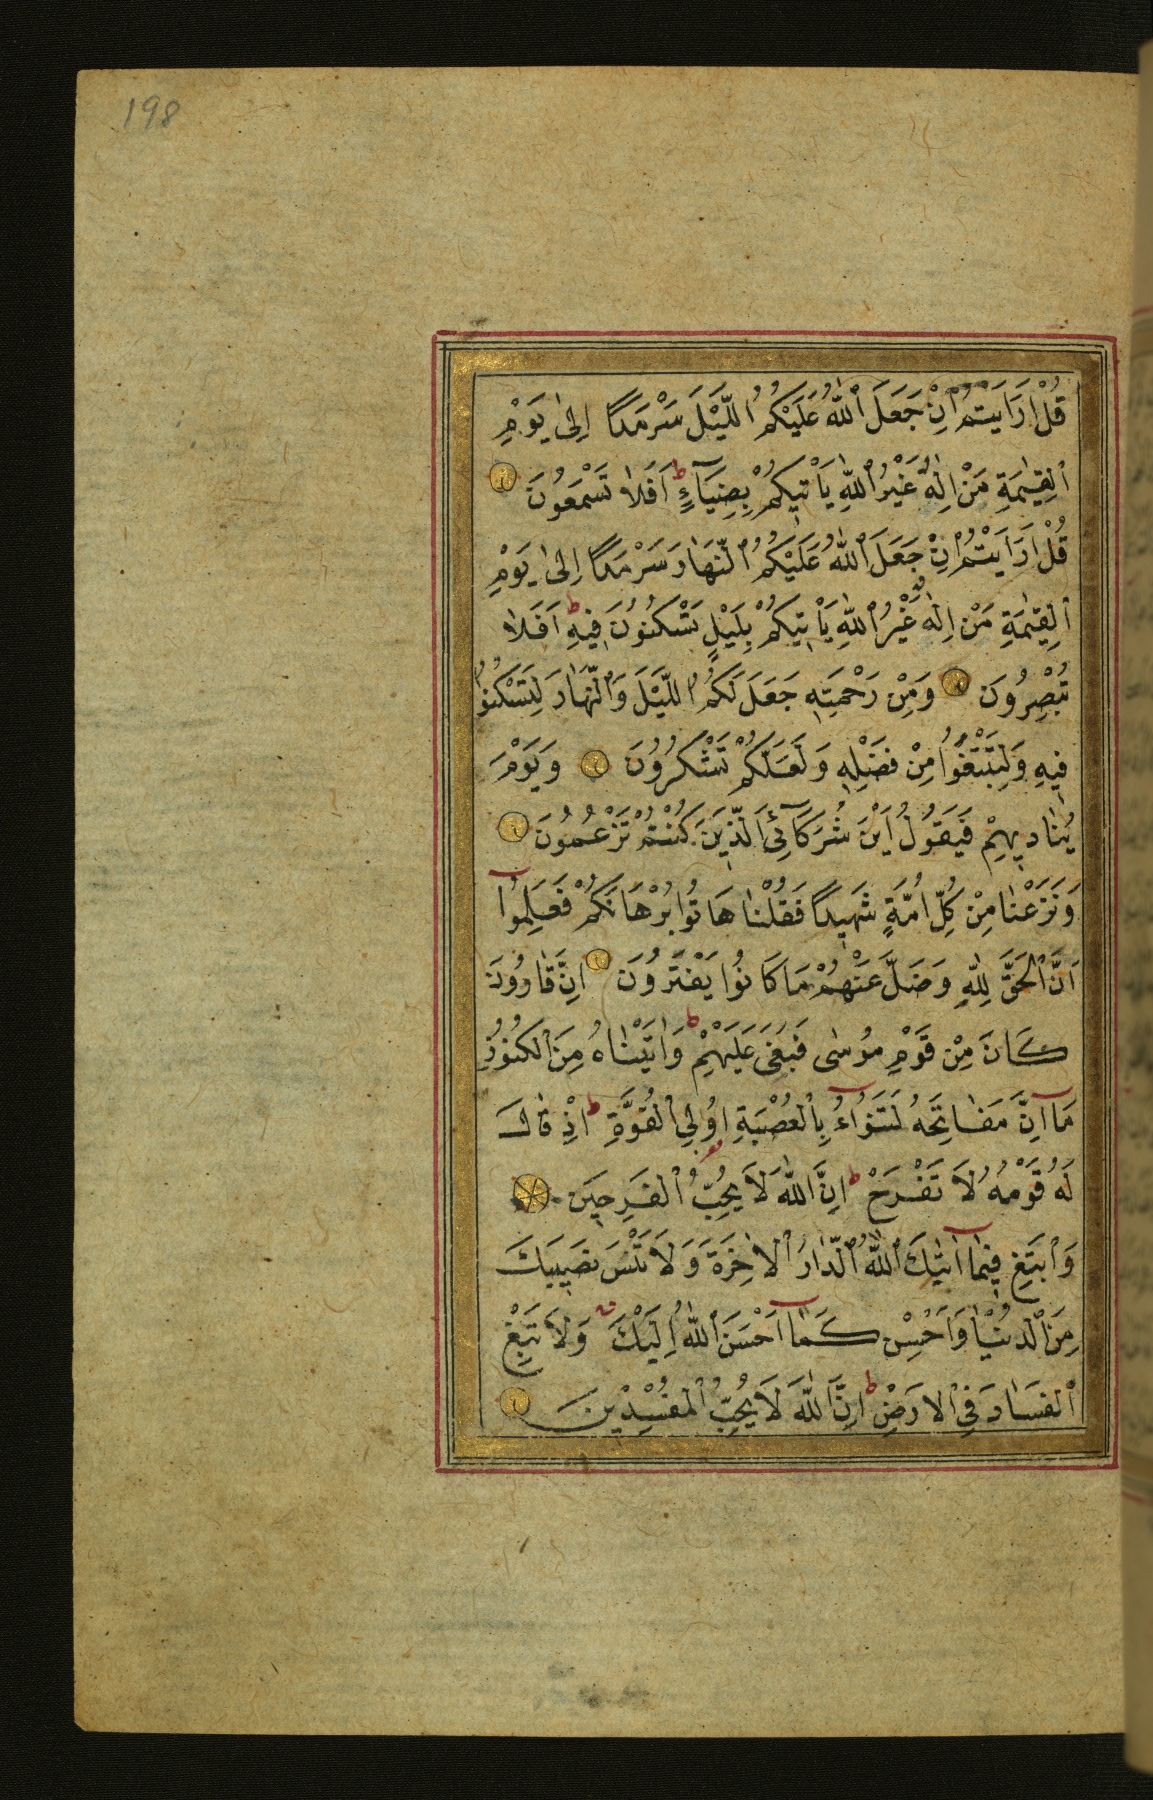 198
قُلْ اَرَاَيْتُمْ اِنْ جَعَلَ ٱللّٰهُ عَلَيْكُمُ ٱللَّيْلَ سَرْمَدًا اِلٰى يَوْمِ
ٱلْقِيٰمَةِ مَنْ اِلٰهٌ غَيْرُ ٱللّٰهِ يَاْتِيكُمْ بِضِيَآءٍ ط اَفَلَا تَسْمَعُونَ
قُلْ اَرَاَيْتُمْ اِنْ جَعَلَ ٱللّٰهُ عَلَيْكُمُ ٱلنَّهَارَ سَرْمَدًا اِلٰى يَوْمِ
ٱلْقِيٰمَةِ مَنْ اِلٰهٌ غَيْرُ ٱللّٰهِ يَاْتِيكُمْ بِلَيْلٍ تَسْكُنُونَ فِيهِ ط اَفَلَا
تُبْصِرُونَ وَمِنْ رَحْمَتِهٖ جَعَلَ لَكُمُ ٱللَّيْلَ وَٱلنَّهَارَ لِتَسْكُنُوا
فِيهِ وَلِتَبْتَغُوا مِنْ فَضْلِهٖ وَلَعَلَّكُمْ تَشْكُرُونَ وَيَوْمَ
يُنَادِيهِمْ فَيَقُولُ اَيْنَ شُرَكَآئِيَ ٱلَّذِينَ كُنْتُمْ تَزْعُمُونَ
وَنَزَعْنَا مِنْ كُلِّ اُمَّةٍ شَهِيدًا فَقُلْنَا هَاتُوا بُرْهَانَكُمْ فَعَلِمُوٓا
اَنَّ ٱلْحَقَّ لِلّٰهِ وَضَلَّ عَنْهُمْ مَا كَانُوا يَفْتَرُونَ اِنَّ قَارُونَ
كَانَ مِنْ قَوْمِ مُوسٰى فَبَغٰى عَلَيْهِمْ ط وَاٰتَيْنَاهُ مِنَ ٱلْكُنُوزِ
مَآ اِنَّ مَفَاتِحَهُ لَتَنُوٓاُ بِٱلْعُصْبَةِ اُولِي ٱلْقُوَّةِ ط اِذْ قَالَ
لَهُ قَوْمُهُ لَا تَفْرَحْ ط اِنَّ ٱللّٰهَ لَا يُحِبُّ ٱلْفَرِحِينَ
وَٱبْتَغِ فِيمَآ اٰتٰيكَ ٱللّٰهُ ٱلدَّارَ ٱلْاٰخِرَةَ وَلَا تَنْسَ نَصِيبَكَ
مِنَ ٱلدُّنْيَا وَاَحْسِنْ كَمَآ اَحْسَنَ ٱللّٰهُ اِلَيْكَ وَلَا تَبْغِ
ٱلْفَسَادَ فِي ٱلْاَرْضِ ط اِنَّ ٱللّٰهَ لَا يُحِبُّ ٱلْمُفْسِدِينَ